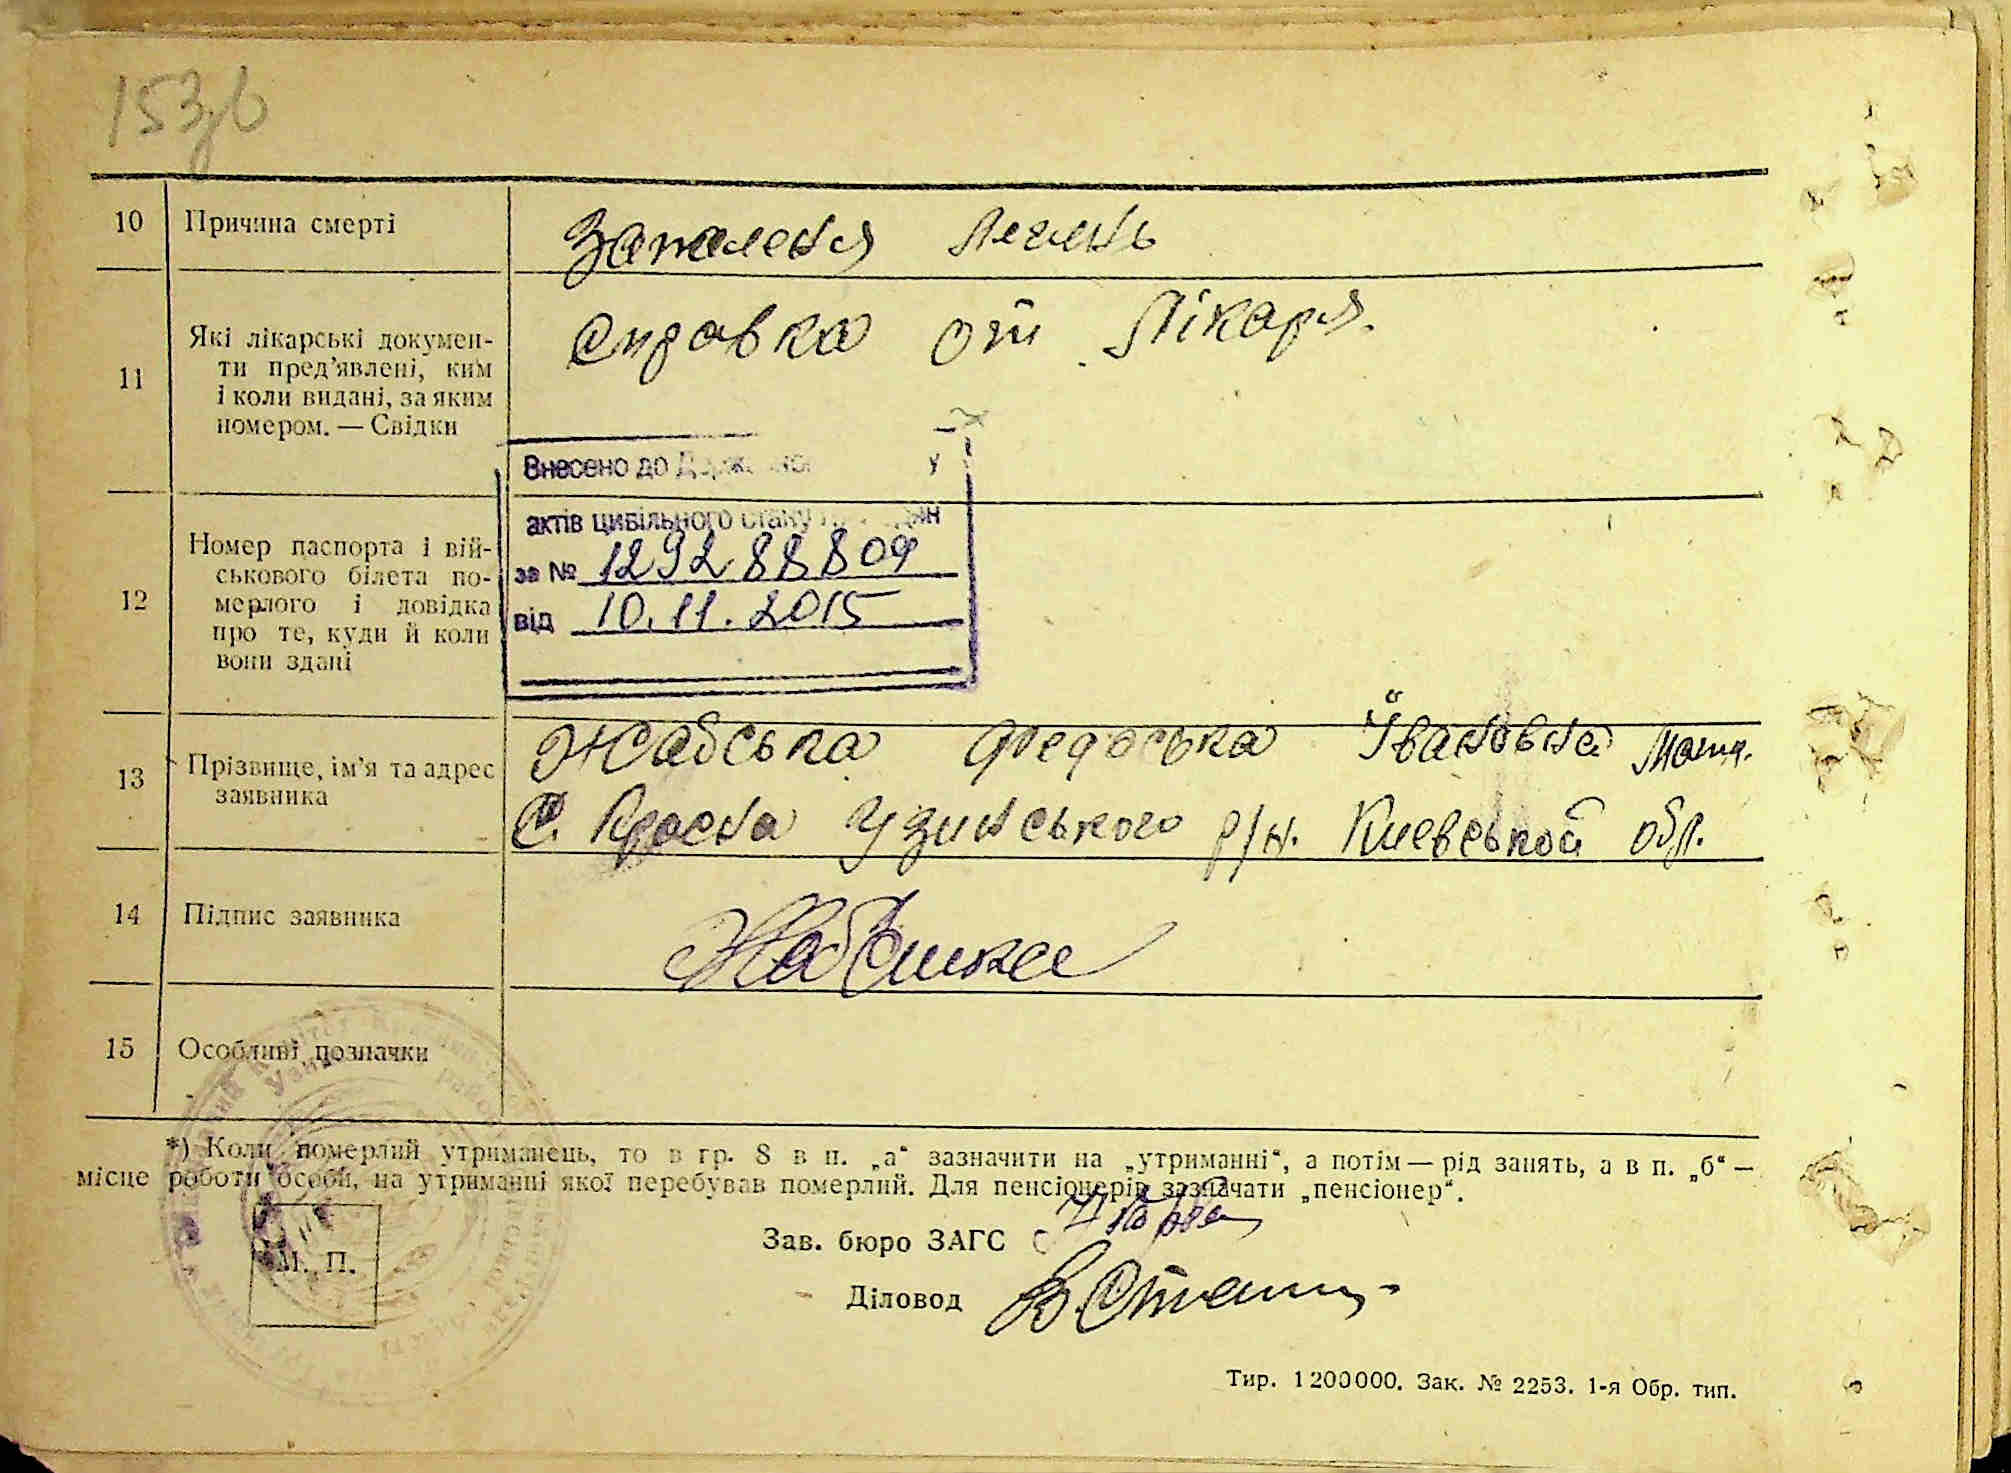 153зв
10 Причина смерті Запаленя Легень
11 Які лікарські докумен-
ти пред’явлені, ким
і коли видані, за яким
номером. — Свідки
Справка от Лікаря.
Внесено до
актів цивільного стану
за № 1292 88 809
від 10.11.2015
12 Номер паспорта і вій-
ськового білета по-
мерлого і довідка
про те, куди й коли
вони здані
13 Прізвище, ім’я та адрес
заявника
Жабська Федоська Івановна
С. Красна Узинського р/н. Киевськой обл.
14 Підпис заявника
15 Особливі позначки
*) Коли померлий утриманець, то в гр. 8 в п. „а“ зазначити на „утриманні“, а потім — рід занять, а в п. „б“ —
місце роботи особи, на утриманні якої перебував померлий. Для пенсіонерів зазначати „пенсіонер“.
Зав. бюро ЗАГС
М. П.
Діловод
Тир. 1200000. Зак. № 2253. 1-я Обр. тип.